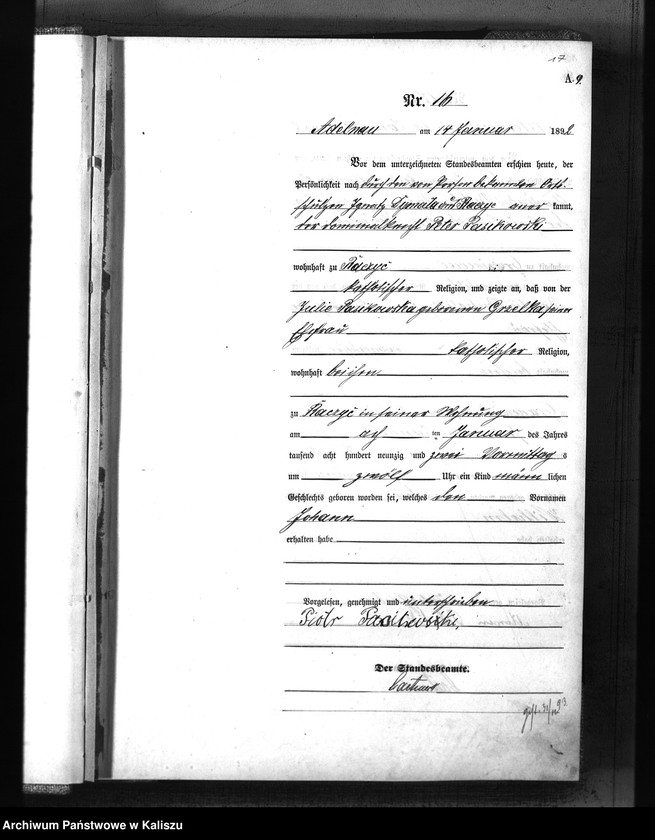 17
A. 9.
Nr. 16
Adelnau am 14 Januar 1892
Vor dem unterzeichneten Standesbeamten erschien heute, der
Persönlichkeit nach durch den von Person bekannten Orts-
schulzen Ignatz aus Raczyc aner kannt,
der Dominialknecht Peter Pasikowski
wohnhaft zu Raczyc
katholischer Religion, und zeigte an, daß von der
Julie Pasikowska geborenen Grzelka seiner
Ehefrau
katholischer Religion,
wohnhaft bei ihm
zu Raczyc in seiner Wohnung
am ten Januar des Jahres
tausend acht hundert neunzig und zwei Vormittag s
um zwölf Uhr ein Kind männ lichen
Geschlechts geboren worden sei, welches den Vornamen
Johann
erhalten habe
Vorgelesen, genehmigt und unterschrieben
Piotr
Der Standesbeamte.
Archiwum Państwowe w Kaliszu